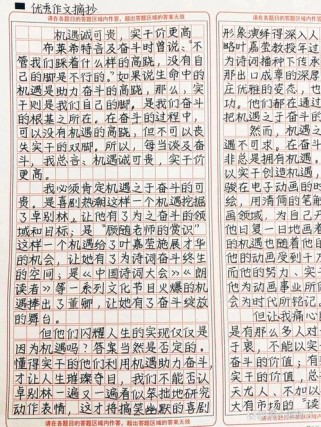 优秀作文摘抄
请在各题目的答题区域内作答，超出答题区域的答案无效
机遇诚可贵，实干价更高
布莱希特言及奋斗时曾说：“不
管我们踩着什么样的高跷，没有自
己的脚是不行的。”如果说生命中的
机遇是助力奋斗的高跷，那么，实
干则是我们自己的脚，是我们奋斗
的根基之所在。在奋斗的过程中，
可以没有机遇的高跷，但不可以丧
失实干的双脚。所以，每当谈及奋
斗，我总言：机遇诚可贵，实干价
更高。
我必须肯定机遇之于奋斗的可
贵。是喜剧热潮这样一个机遇挖掘
了卓别林。让他有了为之奋斗的领
域和目标；是“顾随老师的赏识”
这样一个机遇给了叶嘉莹施展才华
的机会，让她有了为诗词奋斗终生
的空间；是《中国诗词大会》《朗
读者》等一系列文化节目火爆的机
遇捧出了董卿，让她有了奋斗绽放
的舞台。
但他们闪耀人生的实现仅仅是
因为机遇吗？答案当然是否定的。
懂得实干的他们利用机遇助力奋斗，
才让人生璀璨夺目。我们不能否认
卓别林一遍又一遍看似笨拙地研究
动作表情，这才将搞笑幽默的喜剧
请在各题目的答题区域内作答，超出答题区域的答案无效
请在各题目的答题区域内
形象演绎得深入人
略叶嘉莹教授半生
为诗词播种下传承
那出口成章的深厚
庄优雅的姿态，也
功。他们都在通过
把机遇之于奋斗的
然而，机遇之
遇不可求。在奋斗
非总是拥有机遇，
以实干创造机遇，
骏在电子动画的时
绘，用清简的笔触
画领域，为自己开
他日复一日地画着
的机遇也随着他日
他的动画受到十方
而他的努力、实干
他为动画事业所做
会为时代所铭记。
但让我痛心
是有那么多人对
于衷，不能以实干
奋斗的价值；有
实干的价值，总
天尤人，不加以
大有市场的“读
请在各题目的答题区域内